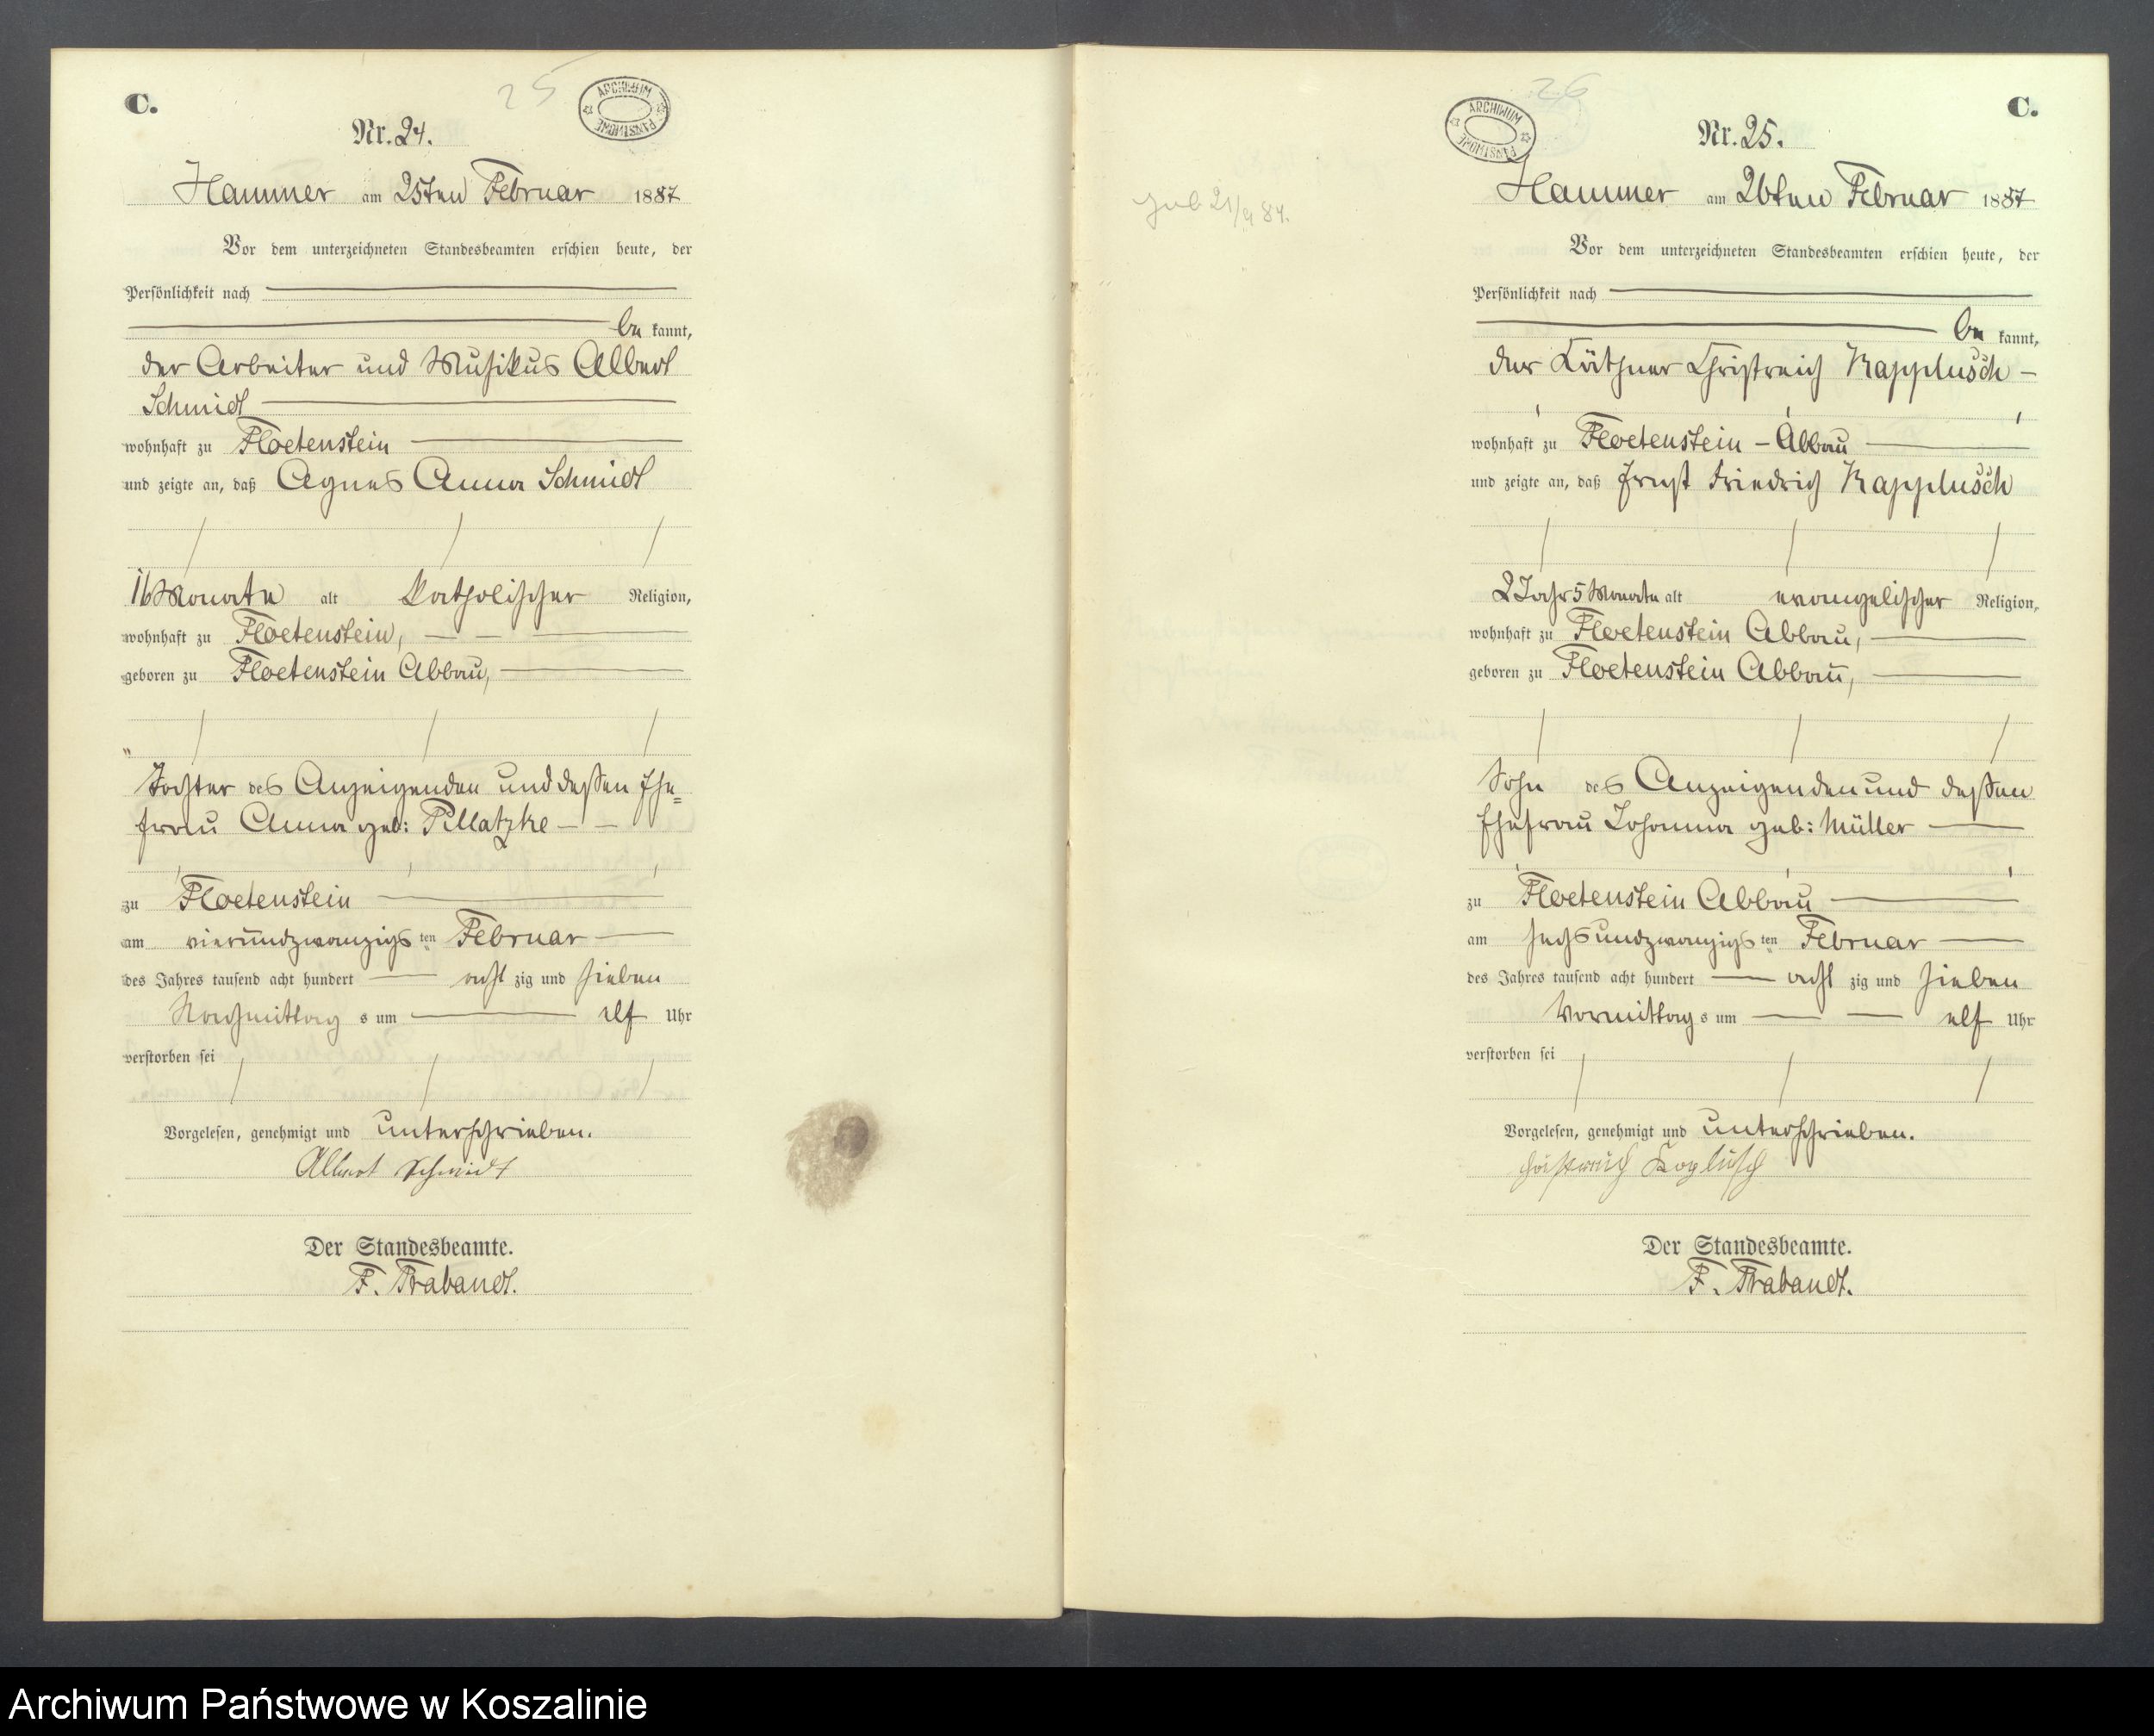 C.
25
ARCHIWUM PAŃSTWOWE
Nr. 24.
Hammer am 25ten Februar 1887
Vor dem unterzeichneten Standesbeamten erschien heute, der
Persönlichkeit nach
be kannt,
der Arbeiter und Musikus Albert
Schmidt
wohnhaft zu Floetenstein
und zeigte an, daß Agnes Anna Schmidt
16 Monate alt katholischer Religion,
wohnhaft zu Floetenstein,
geboren zu Floetenstein Abbau,
Tochter des Anzeigenden und dessen Ehe=
frau Anna geb: Pillatzke
zu Floetenstein
am vierundzwanzigs ten Februar
des Jahres tausend acht hundert acht zig und sieben
Nachmittag s um elf Uhr
verstorben sei
Vorgelesen, genehmigt und unterschrieben.
Albert Schmidt
Der Standesbeamte.
F. Trabandt.
C.
26
ARCHIWUM PAŃSTWOWE
Nr. 25.
geb 21/9 84.
Hammer am 26ten Februar 1887
Vor dem unterzeichneten Standesbeamten erschien heute, der
Persönlichkeit nach
be kannt,
der Käthner Christreich Kapplusch
wohnhaft zu Floetenstein - Abbau
und zeigte an, daß Ernst Friedrich Kapplusch
2 Jahr 5 Monate alt evangelischer Religion,
wohnhaft zu Floetenstein Abbau,
geboren zu Floetenstein Abbau,
Sohn des Anzeigenden und dessen
Ehefrau Johanna geb: Müller
zu Floetenstein Abbau
am sechsundzwanzigs ten Februar
des Jahres tausend acht hundert acht zig und sieben
Vormittag s um elf Uhr
verstorben sei
Vorgelesen, genehmigt und unterschrieben.
Der Standesbeamte.
F. Trabandt.
Archiwum Państwowe w Koszalinie